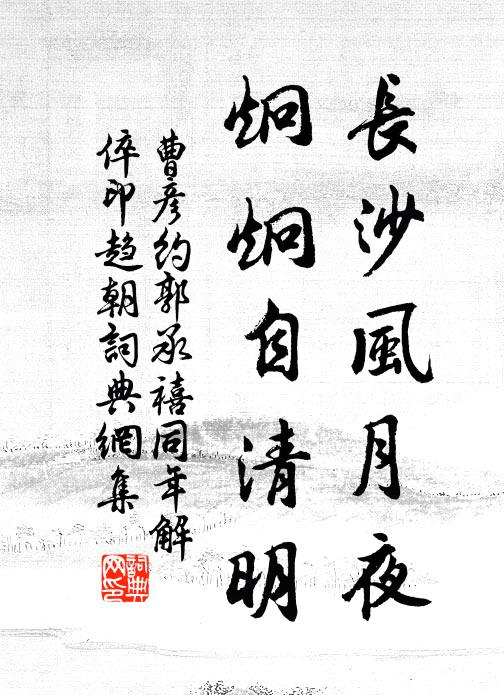 長沙風月夜
炯炯自清明
曹彦約郭承禧同年解
倅印趋朝詞典網集
詞典网印